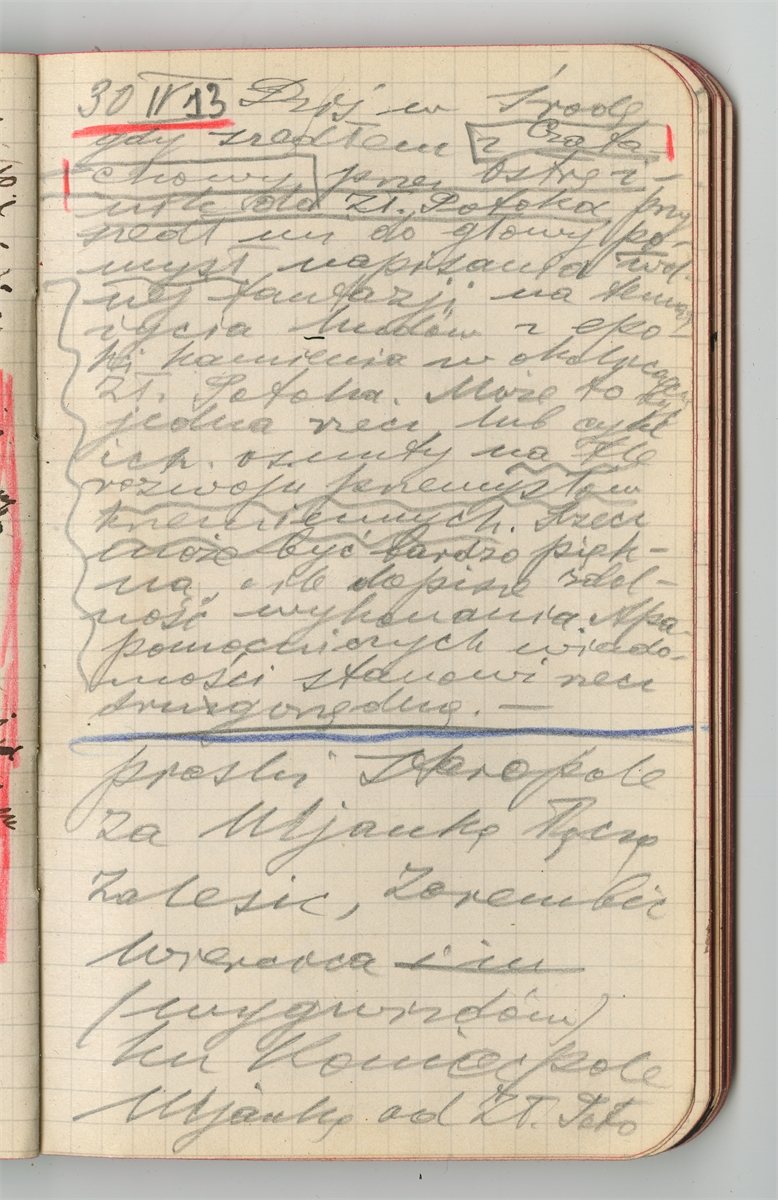 30 IV 13 Dziś w środę
gdy szedłem z Częsta-
chowy przez Ostręż-
nik do Zł. Potoka przy
szedł mi do głowy po-
mysł napisania
nej fantazji na temat
życia ludów z epo-
ki kamienia w okolicach
Zł. Potoka. Może to być
jedna rzecz lub cykl
ich. osnuty na tle
rozwoju przemysłów
krzemiennych. Rzecz
może być bardzo pięk-
ną, o ile dopisze zdol-
ność wykonania. Apa-
pomocniczych wiado-
mości stanowi rzecz
drugorzędną. —
proski Staropole
za Mijankę
Zalesic, Zarembic
Wiercica
(wygwizdów)
ku Koniecpole
Mijankę od Zł. Poto